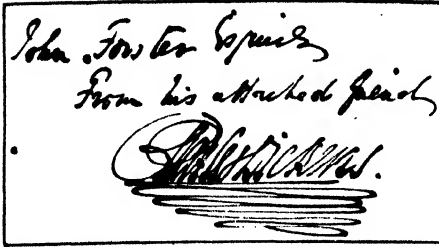 John Forster Esquire
From his attached friend
Charles Dickens.